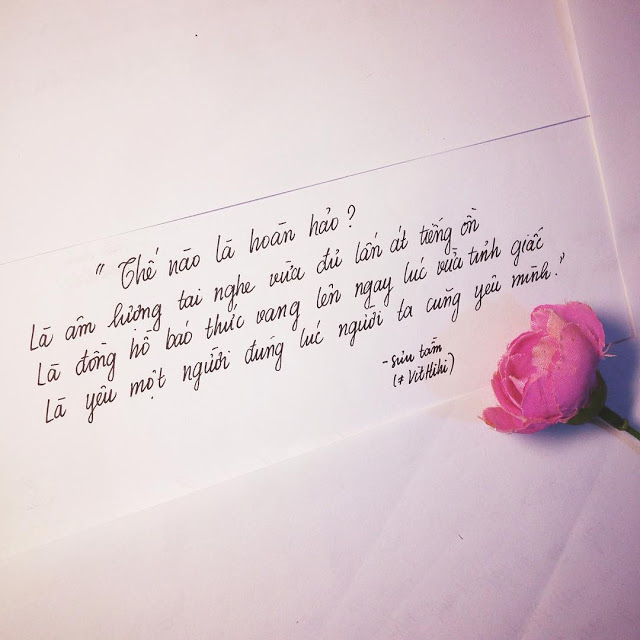 " Thế nào là hoàn hảo ?
Là âm lượng tai nghe vừa đủ lấn át tiếng ồn
Là đồng hồ báo thức vang lên ngay lúc vừa tỉnh giấc
Là yêu một người đúng lúc người ta cũng yêu mình. "
- sưu tầm
(# VitHihi)